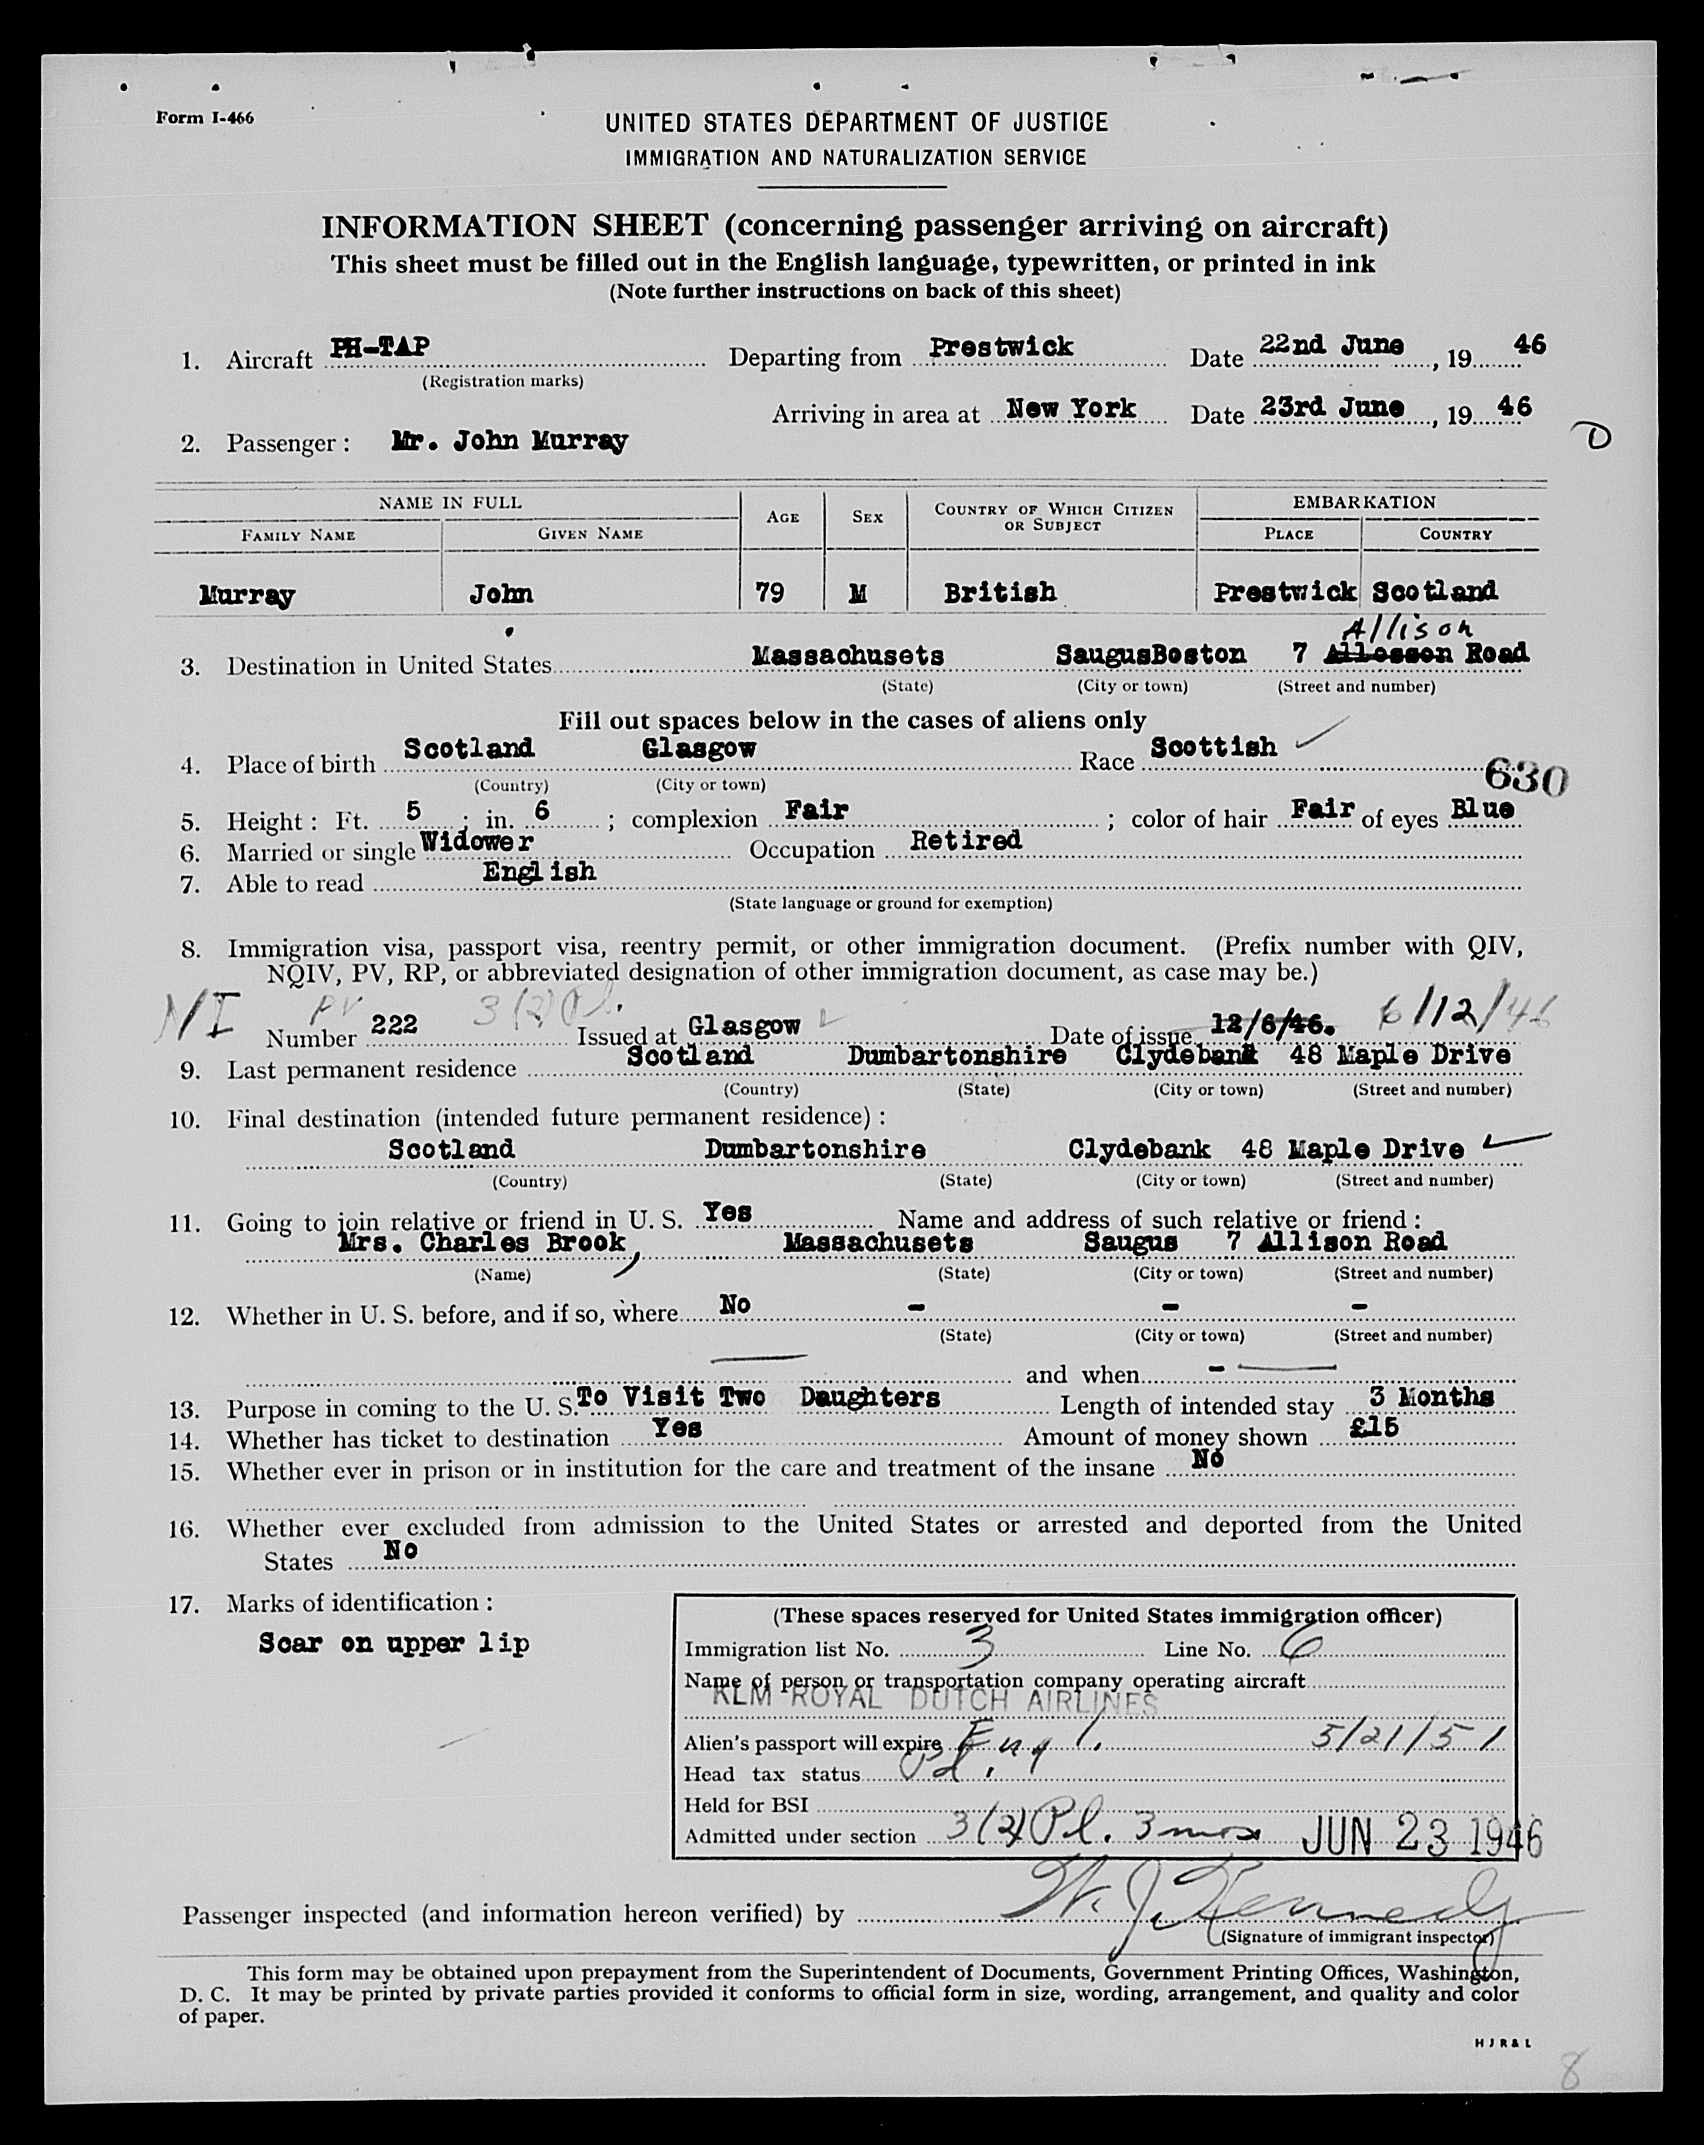 Form I-466
UNITED STATES DEPARTMENT OF JUSTICE
IMMIGRATION AND NATURALIZATION SERVICE
INFORMATION SHEET (concerning passenger arriving on aircraft)
This sheet must be filled out in the English language, typewritten, or printed in ink
(Note further instructions on back of this sheet)
1. Aircraft PH-TAP Departing from Prestwick Date 22nd June, 19 46
(Registration marks)
Arriving in area at New York Date 23rd June, 19 46
D
2. Passenger: Mr. John Murray
NAME IN FULL AGE SEX COUNTRY OF WHICH CITIZEN OR SUBJECT EMBARKATION
FAMILY NAME GIVEN NAME PLACE COUNTRY
Murray John 79 M British Prestwick Scotland
Allison
3. Destination in United States Massachusets SaugusBoston 7 Allosson Road
(State) (City or town) (Street and number)
Fill out spaces below in the cases of aliens only
4. Place of birth Scotland Glasgow Race Scottish
(Country) (City or town)
630
5. Height: Ft. 5; in. 6; complexion Fair; color of hair Fair of eyes Blue
6. Married or single Widower Occupation Retired
7. Able to read English
(State language or ground for exemption)
8. Immigration visa, passport visa, reentry permit, or other immigration document. (Prefix number with QIV,
NQIV, PV, RP, or abbreviated designation of other immigration document, as case may be.)
PV 3(2)Pl. 6/12/46
Number 222 Issued at Glasgow Date of issue 12/6/46.
9. Last permanent residence Scotland Dumbartonshire Clydebank 48 Maple Drive
(Country) (State) (City or town) (Street and number)
10. Final destination (intended future permanent residence):
Scotland Dumbartonshire Clydebank 48 Maple Drive
(Country) (State) (City or town) (Street and number)
11. Going to join relative or friend in U. S. Yes Name and address of such relative or friend:
Mrs. Charles Brook, Massachusets Saugus 7 Allison Road
(Name) (State) (City or town) (Street and number)
12. Whether in U. S. before, and if so, where No - - -
(State) (City or town) (Street and number)
and when -
13. Purpose in coming to the U. S. To Visit Two Daughters Length of intended stay 3 Months
14. Whether has ticket to destination Yes Amount of money shown £15
15. Whether ever in prison or in institution for the care and treatment of the insane No
16. Whether ever excluded from admission to the United States or arrested and deported from the United
States No
17. Marks of identification:
Scar on upper lip
(These spaces reserved for United States immigration officer)
Immigration list No. 3 Line No. 6
Name of person or transportation company operating aircraft
KLM ROYAL DUTCH AIRLINES
Alien's passport will expire Engl. 5/21/51
Head tax status Pd.
Held for BSI
Admitted under section 3(2) Pl. 3 mos JUN 23 1946
Passenger inspected (and information hereon verified) by W. J. Kennedy
(Signature of immigrant inspector)
This form may be obtained upon prepayment from the Superintendent of Documents, Government Printing Offices, Washington,
D. C. It may be printed by private parties provided it conforms to official form in size, wording, arrangement, and quality and color
of paper.
H J R & L
8